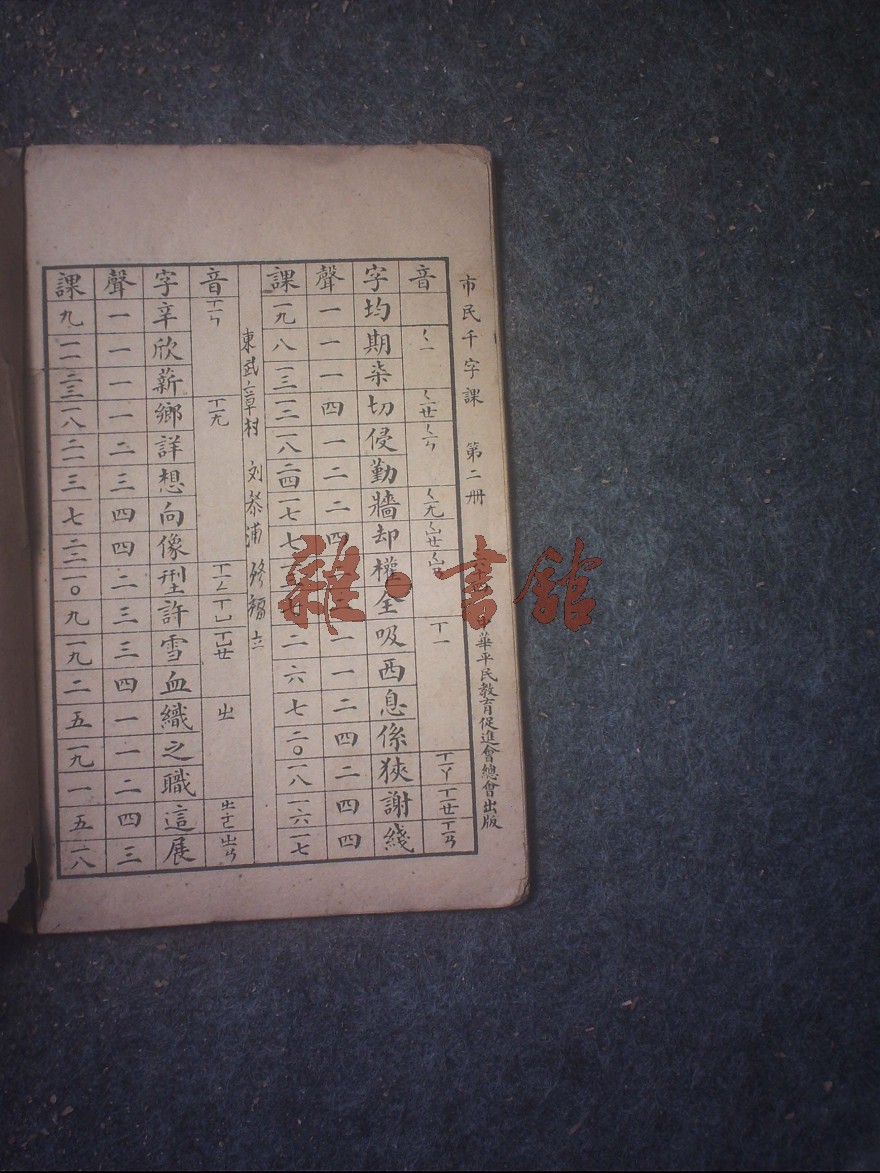 市民千字課 第二冊 中華平民教育促進會總會出版
音 ㄑㄧ ㄑㄧㄝ ㄑㄧㄣ ㄑㄧㄤ ㄑㄩㄝ ㄑㄩㄢ ㄒㄧ ㄒㄧㄚ ㄒㄧㄝ ㄒㄧㄢ
字 均 期 柒 切 侵 勤 牆 却 權 全 吸 西 息 係 狹 謝 綫
聲 一 一 一 四 一 二 二 四 一 一 二 四 二 四 四
課 一九 八 一三 一二 一八 二四 一七 七 二 六 七 二〇 一八 一六 一七
東武章村 刘恭浦 立
音 ㄒㄧㄣ ㄒㄧㄤ ㄒㄧㄥ ㄒㄩ ㄒㄩㄝ ㄓ ㄓㄜ ㄓㄢ
字 辛 欣 薪 鄉 詳 想 向 像 型 許 雪 血 織 之 職 這 展
聲 一 一 一 一 二 三 四 四 二 三 三 四 一 一 二 四 三
課 九 一一 二三 一八 二一 三 七 二二 一〇 九 一九 二 五 一九 一 五 一八
雜·書館